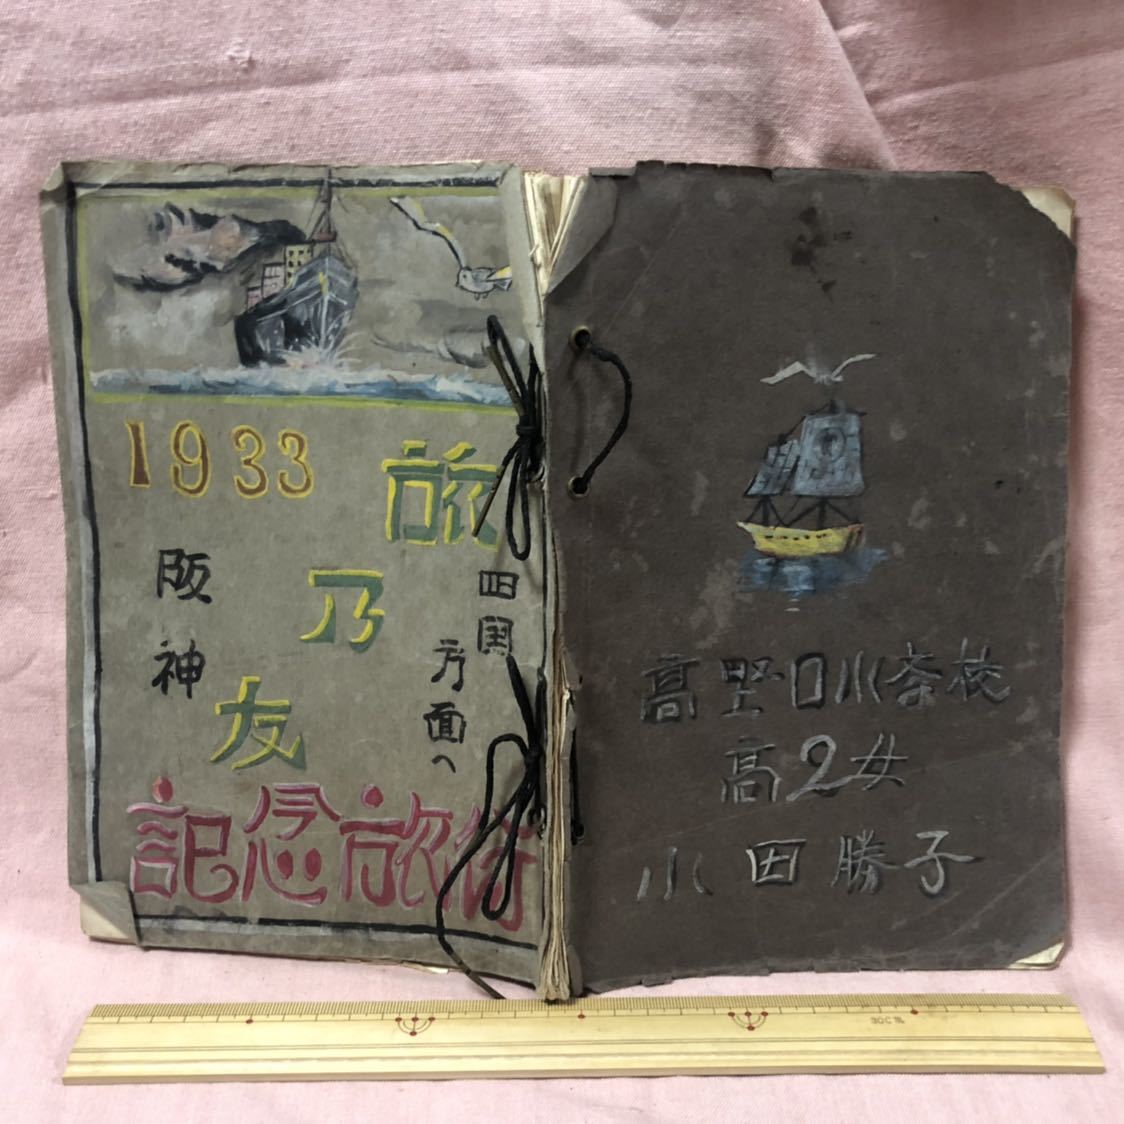 1933
旅乃友
四国
方面へ
阪神
記念旅行
高野口小学校
高2女
小田勝子